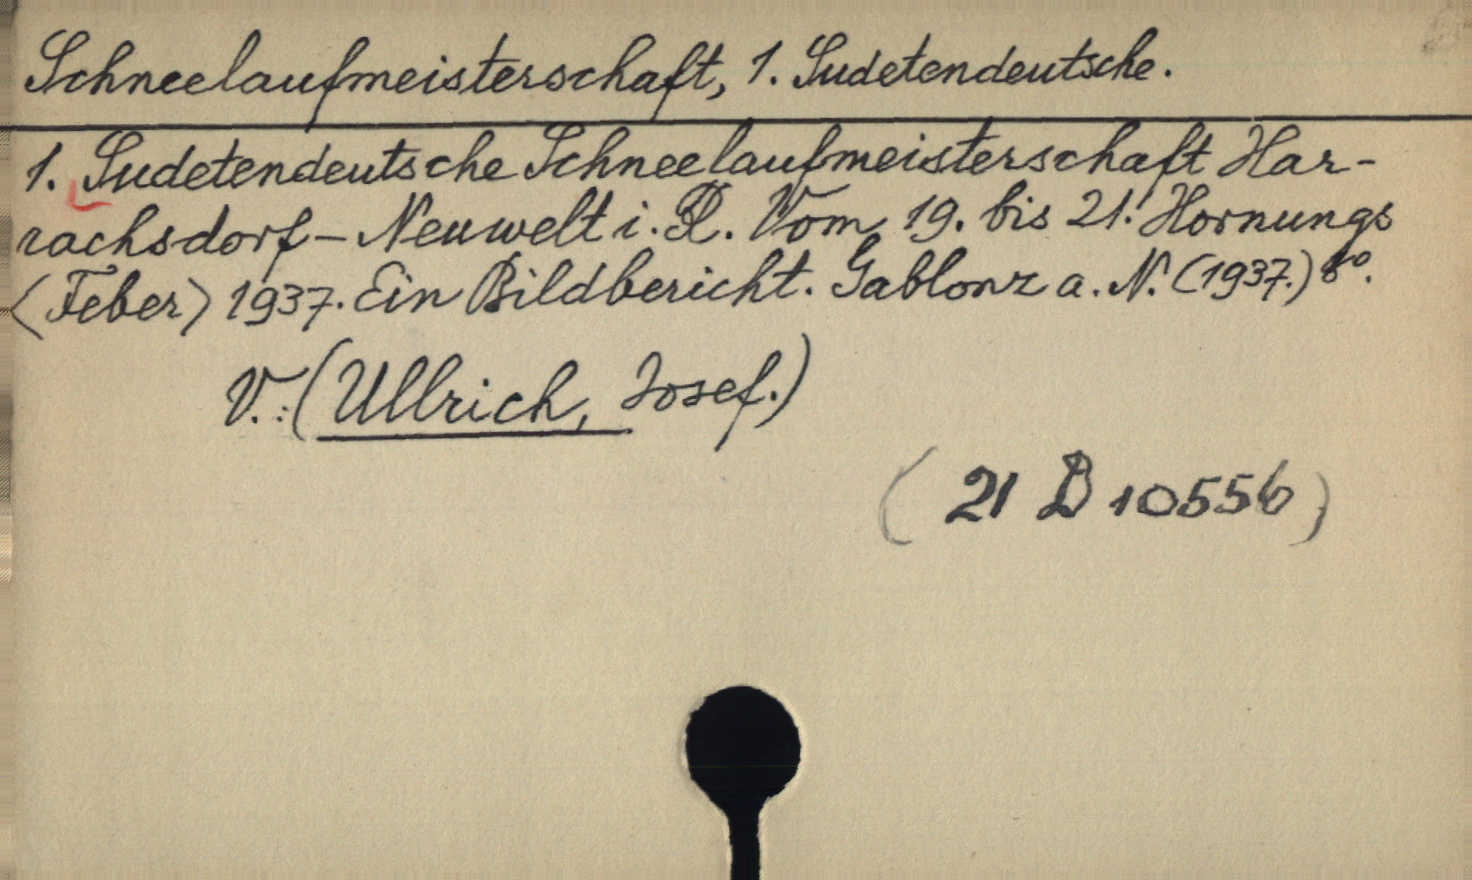 Schneelaufmeisterschaft, 1. Sudetendeutsche.
1. Sudetendeutsche Schneelaufmeisterschaft Har-
rachsdorf - Neuwelt i. R. Vom 19. bis 21. Hornungs
(Feber) 1937. Ein Bildbericht. Gablonz a. N. (1937.) 8°.
V.: (Ullrich, Josef.)
(21 B 10556)